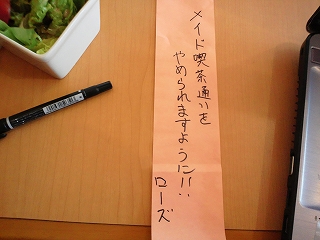 メイド喫茶通いを
やめられますように!!
ローズ